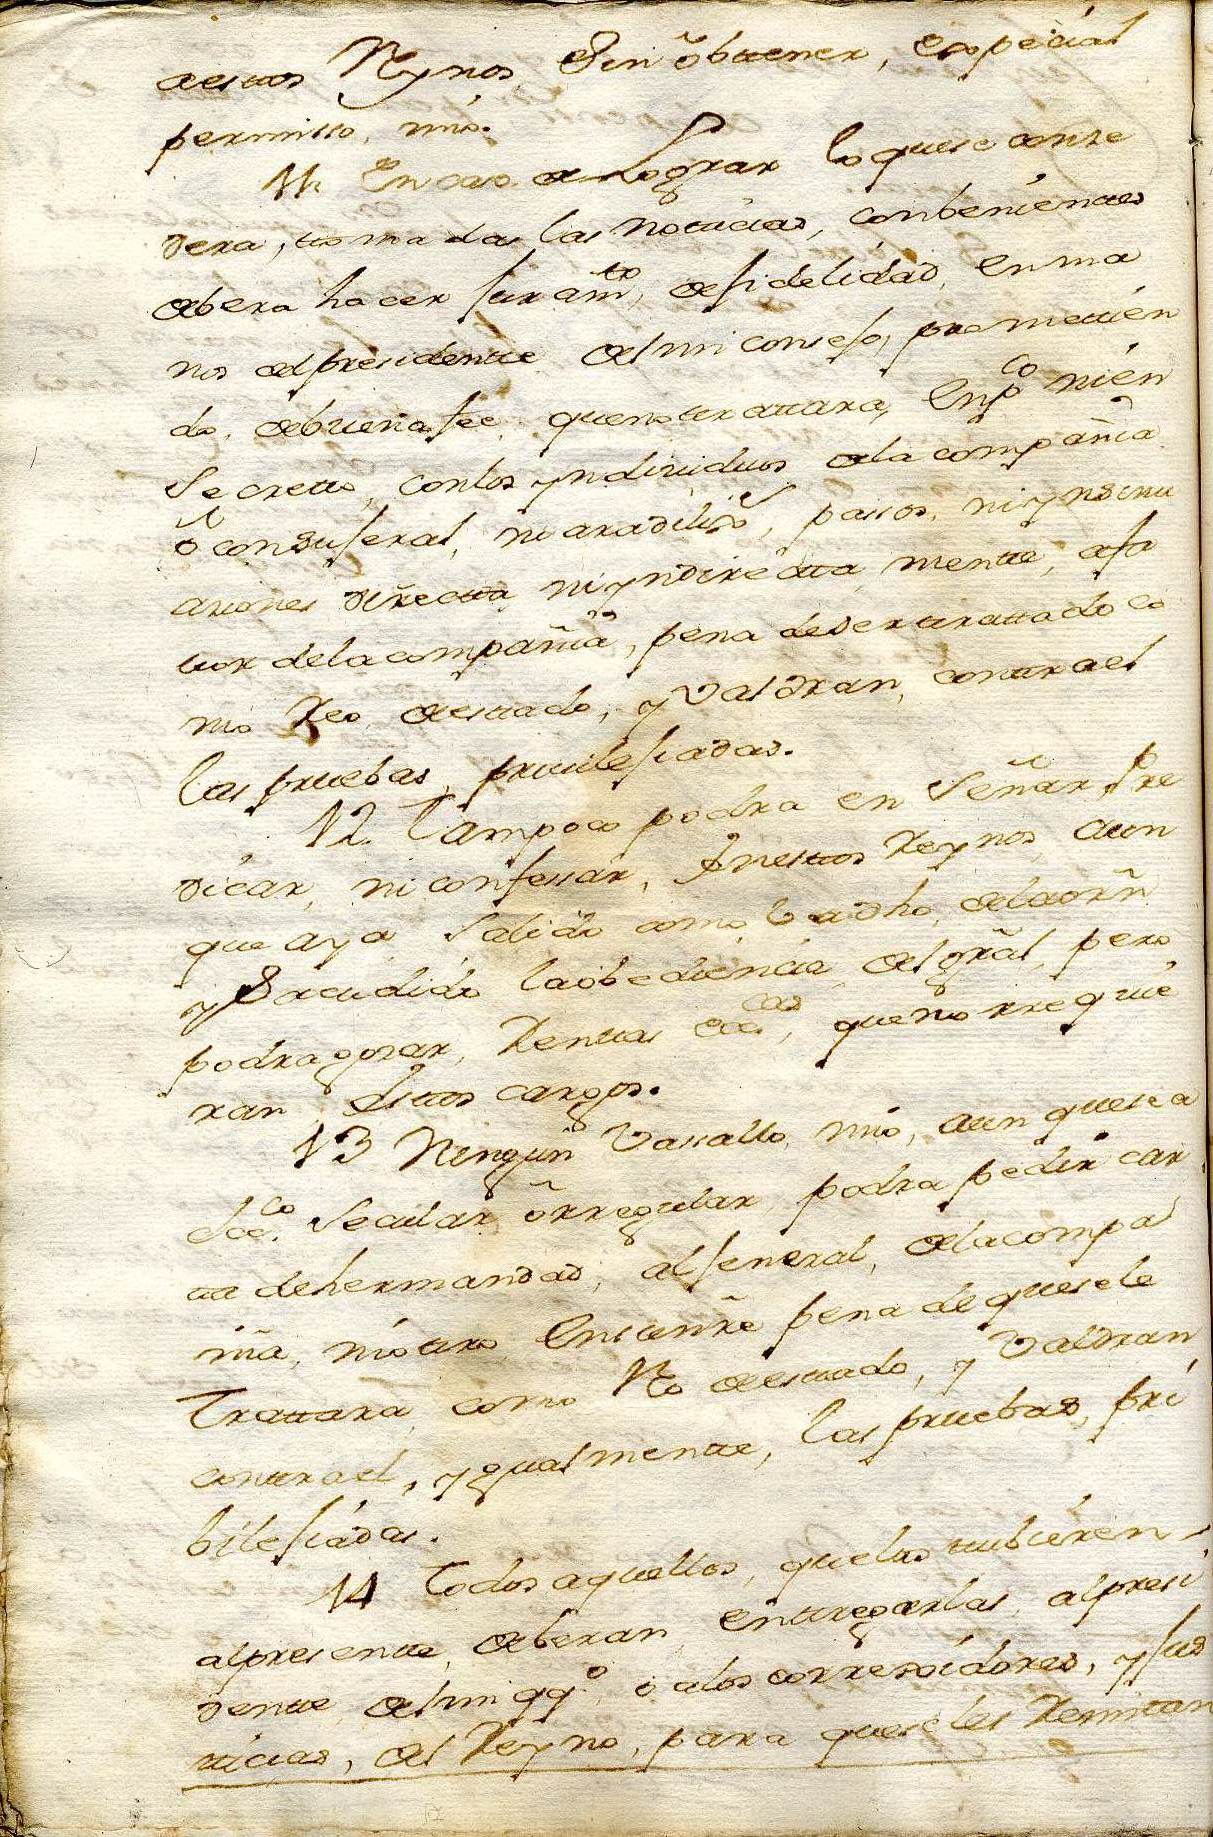 aestos Reynos, Sin obttener, especial
permisso, mio.
11. En caso de Lograr lo que se conze
dera, ttomadas las notticias, conbenienttes
debera hacer Juramto, de fidelidad, en ma
nos del presidentte del mi consejo, promettien
do, de buena fee, que no ttrattara, en pco ni en
Secretto, con los yndividuos de la compañia
o con Su Jeral, ni ara dilixs, passos, ni ynsinu
aciones directta, ni yndirectta mentte, a fa
vor de la compañia, pena de Ser ttrattado co
mo Reo de esttado, y Valdran, conttra el
las pruebas, previlejiadas.
12. Tampoco podra enSeñar, Pre
dicar, ni confessar, En esttos Reynos, aun
que aya Salido como va dho, de la orñ
y Sacudido la obediencia, del gral, pero
podra gozar, Renttas eccas, que no rrequie
ran Esttos cargos.
13 Ningun Vassallo, mio, aunque sea
Ecco. Secular, o rregular, podra pedir car
tta de hermandad, al Jeneral, de la compa
ñia, ni ottro En su nre pena de que se le
Trattara, como Ro de esttado, y Valdran
conttra el, ygualmentte, las pruebas, pri
bilejiadas.
14 Todos aquellos, que las ttubieren
al presentte, deberan, enttregarlas, al presi
dentte del mi qqo, o a los correxidores, y Jus
ticias, del Reyno, para que se les Remitan